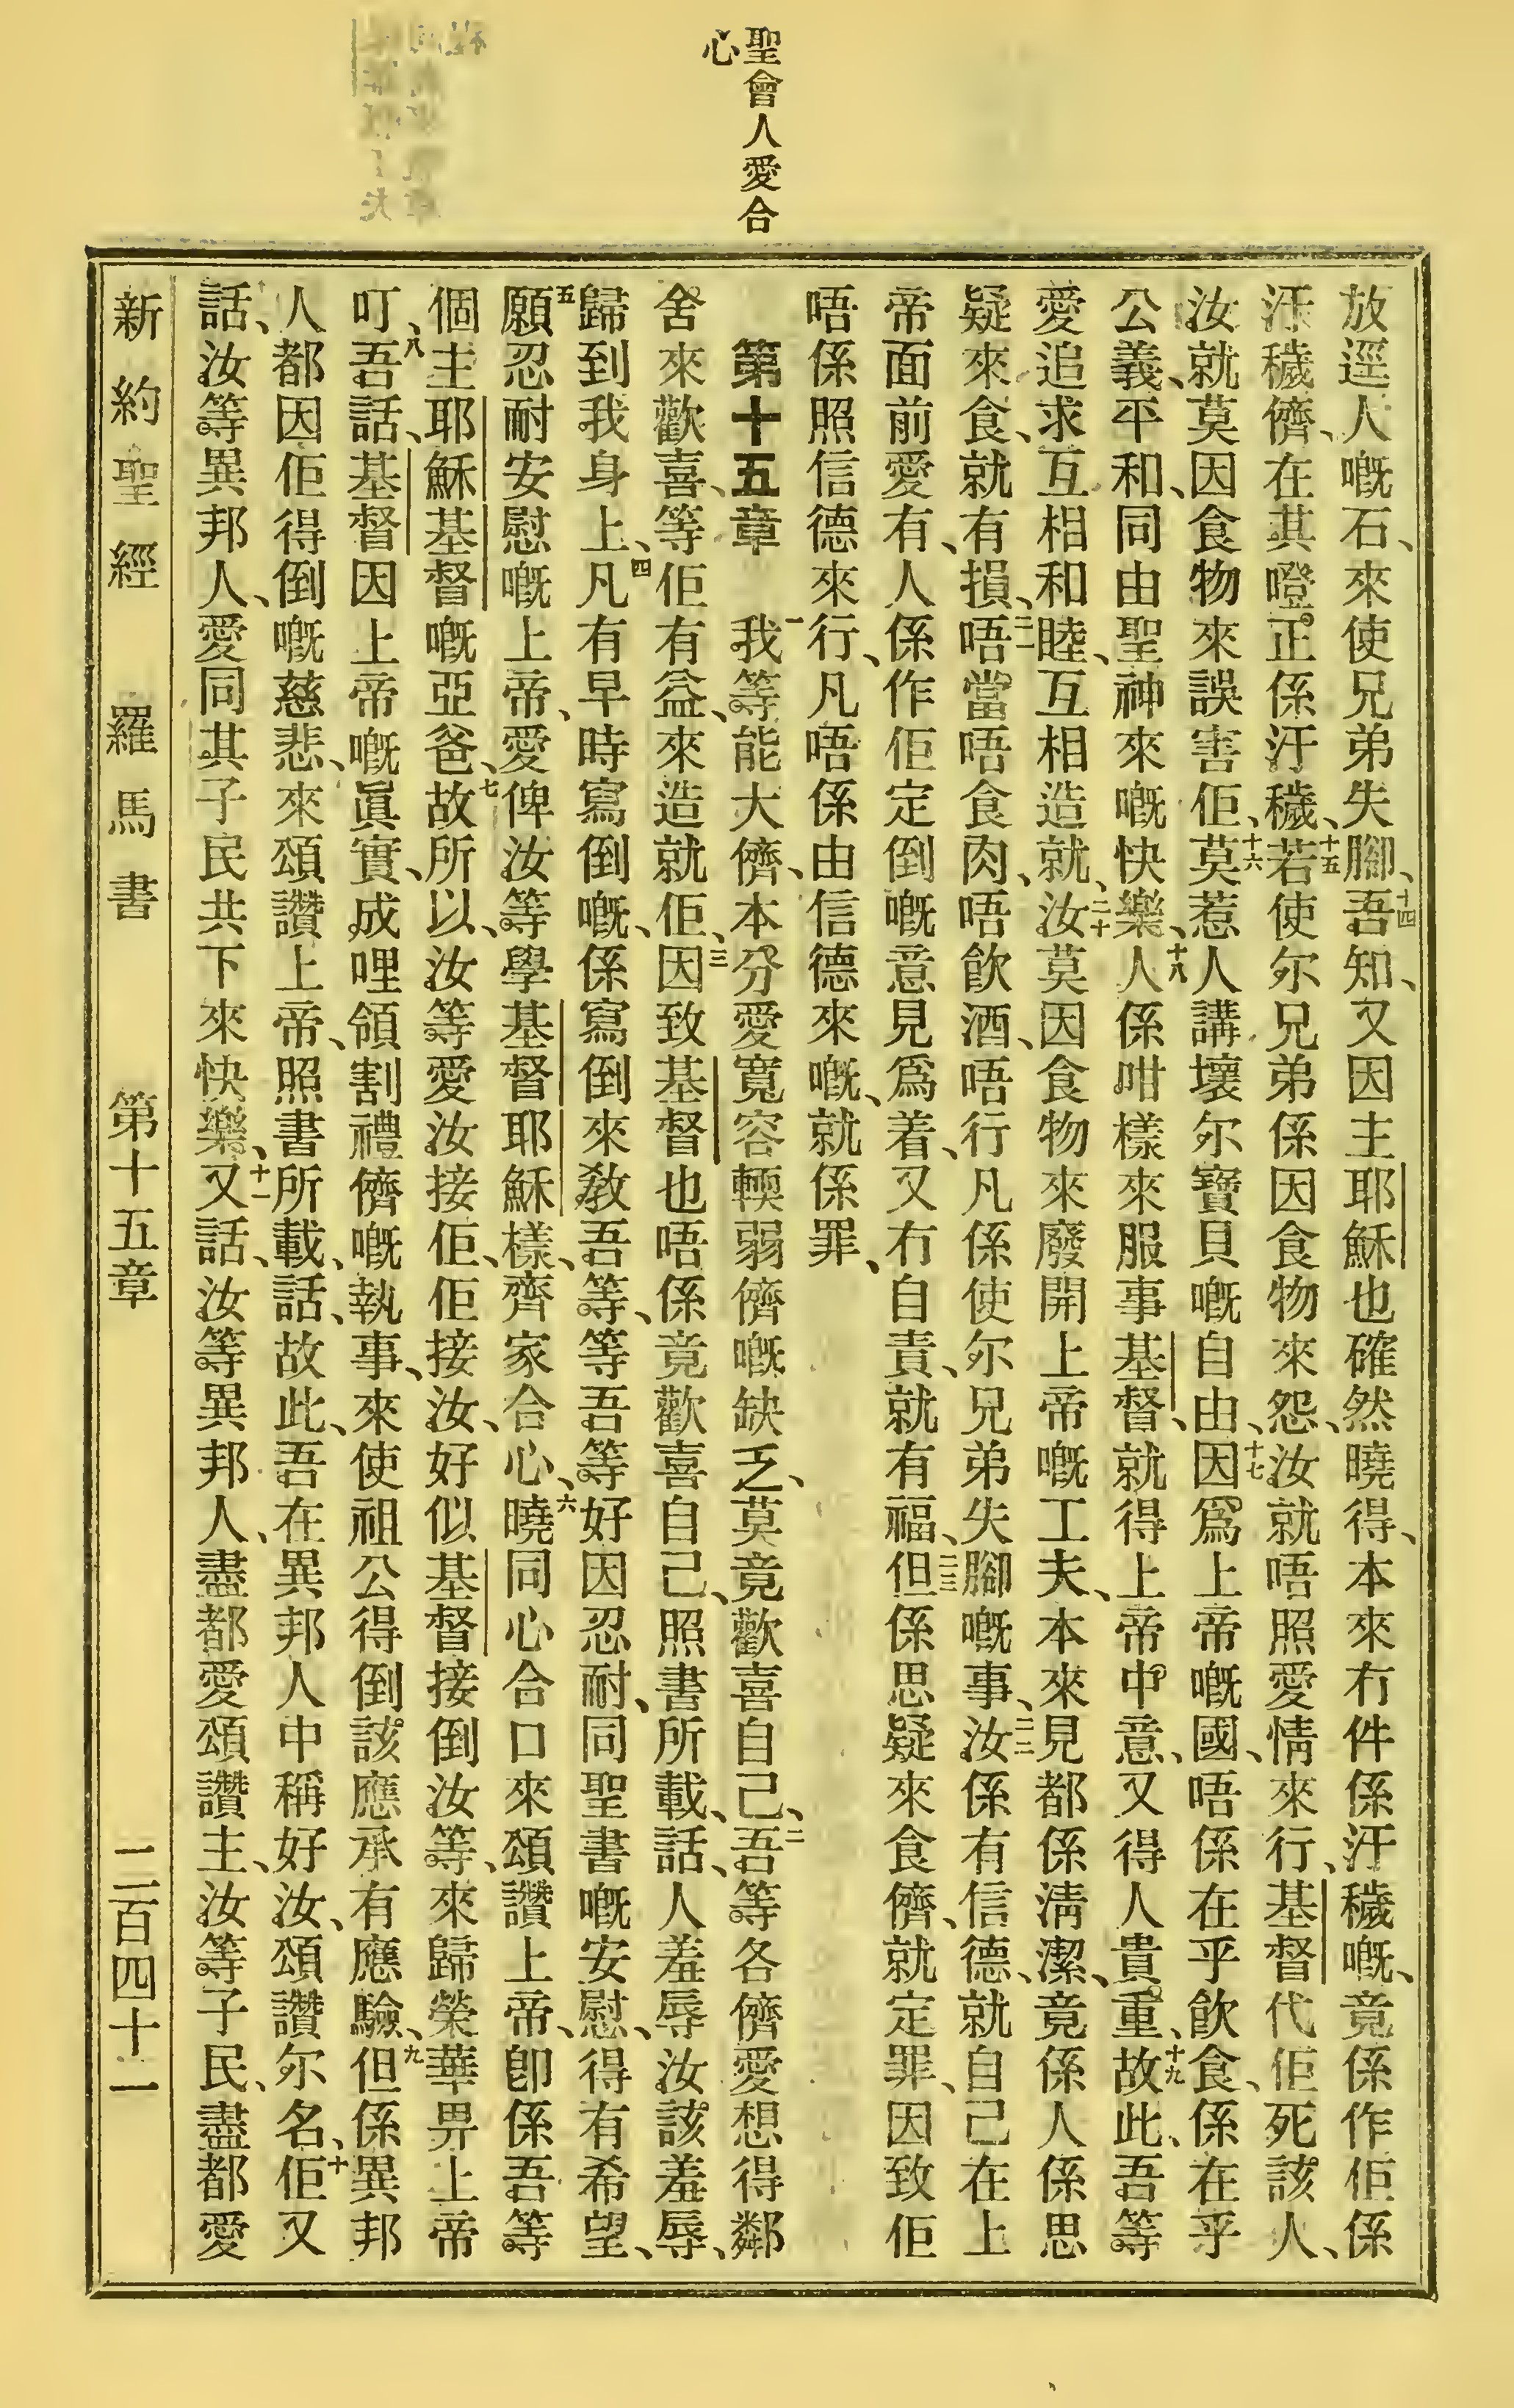 聖會人愛合
心
放逕人嘅石、來使兄弟失腳、十四吾知、又因主耶穌也確然曉得、本來冇件係汙穢嘅、竟係作佢係
汙穢儕、在其噔。正係汙穢、十五若使尔兄弟係因食物來怨、汝就唔照愛情來行、基督代佢死該人、
汝就莫因食物來誤害佢、十六莫惹人講壞尔寶貝嘅自由、十七因爲上帝嘅國、唔係在乎飲食、係在乎
公義、平和、同由聖神來嘅快樂、十八人係咁樣來服事基督、就得上帝中意、又得人貴重、十九故此、吾等
愛追求互相和睦、互相造就、二十汝莫因食物來廢開上帝嘅工夫、本來見都係淸潔、竟係人係思
疑來食、就有損、二一唔當唔食肉、唔飲酒、唔行凡係使尔兄弟失腳嘅事、二二汝係有信德、就自己在上
帝面前愛有、人係作佢定倒嘅意見爲着、又冇自責、就有福、二三但係思疑來食儕、就定罪、因致佢
唔係照信德來行、凡唔係由信德來嘅、就係罪、
第十五章 一我等能大儕、本分愛寬容輭弱儕嘅缺乏、莫竟歡喜自己、二吾等各儕愛想得鄰
舍來歡喜、等佢有益、來造就佢、三因致基督也唔係竟歡喜自己、照書所載、話、人羞辱汝該羞辱、
歸到我身上、四凡有早時寫倒嘅、係寫倒來敎吾等、等吾等好因忍耐、同聖書嘅安慰、得有希望、
五願忍耐安慰嘅上帝、愛俾汝等學基督耶穌樣、齊家合心、六曉同心合口來頌讚上帝、卽係吾等
個主耶穌基督嘅亞爸、七故所以、汝等愛汝接佢、佢接汝、好似基督接倒汝等、來歸榮華畀上帝
叮、八吾話、基督因上帝嘅眞實、成哩領割禮儕嘅執事、來使祖公得倒該應承有應驗、九但係異邦
人都因佢得倒嘅慈悲、來頌讚上帝、照書所載、話、故此、吾在異邦人中稱好汝、頌讚尔名、十佢又
話、汝等異邦人、愛同其子民共下來快樂、十一又話、汝等異邦人、盡都愛頌讚主、汝等子民、盡都愛
新約聖經 羅馬書 第十五章 二百四十一